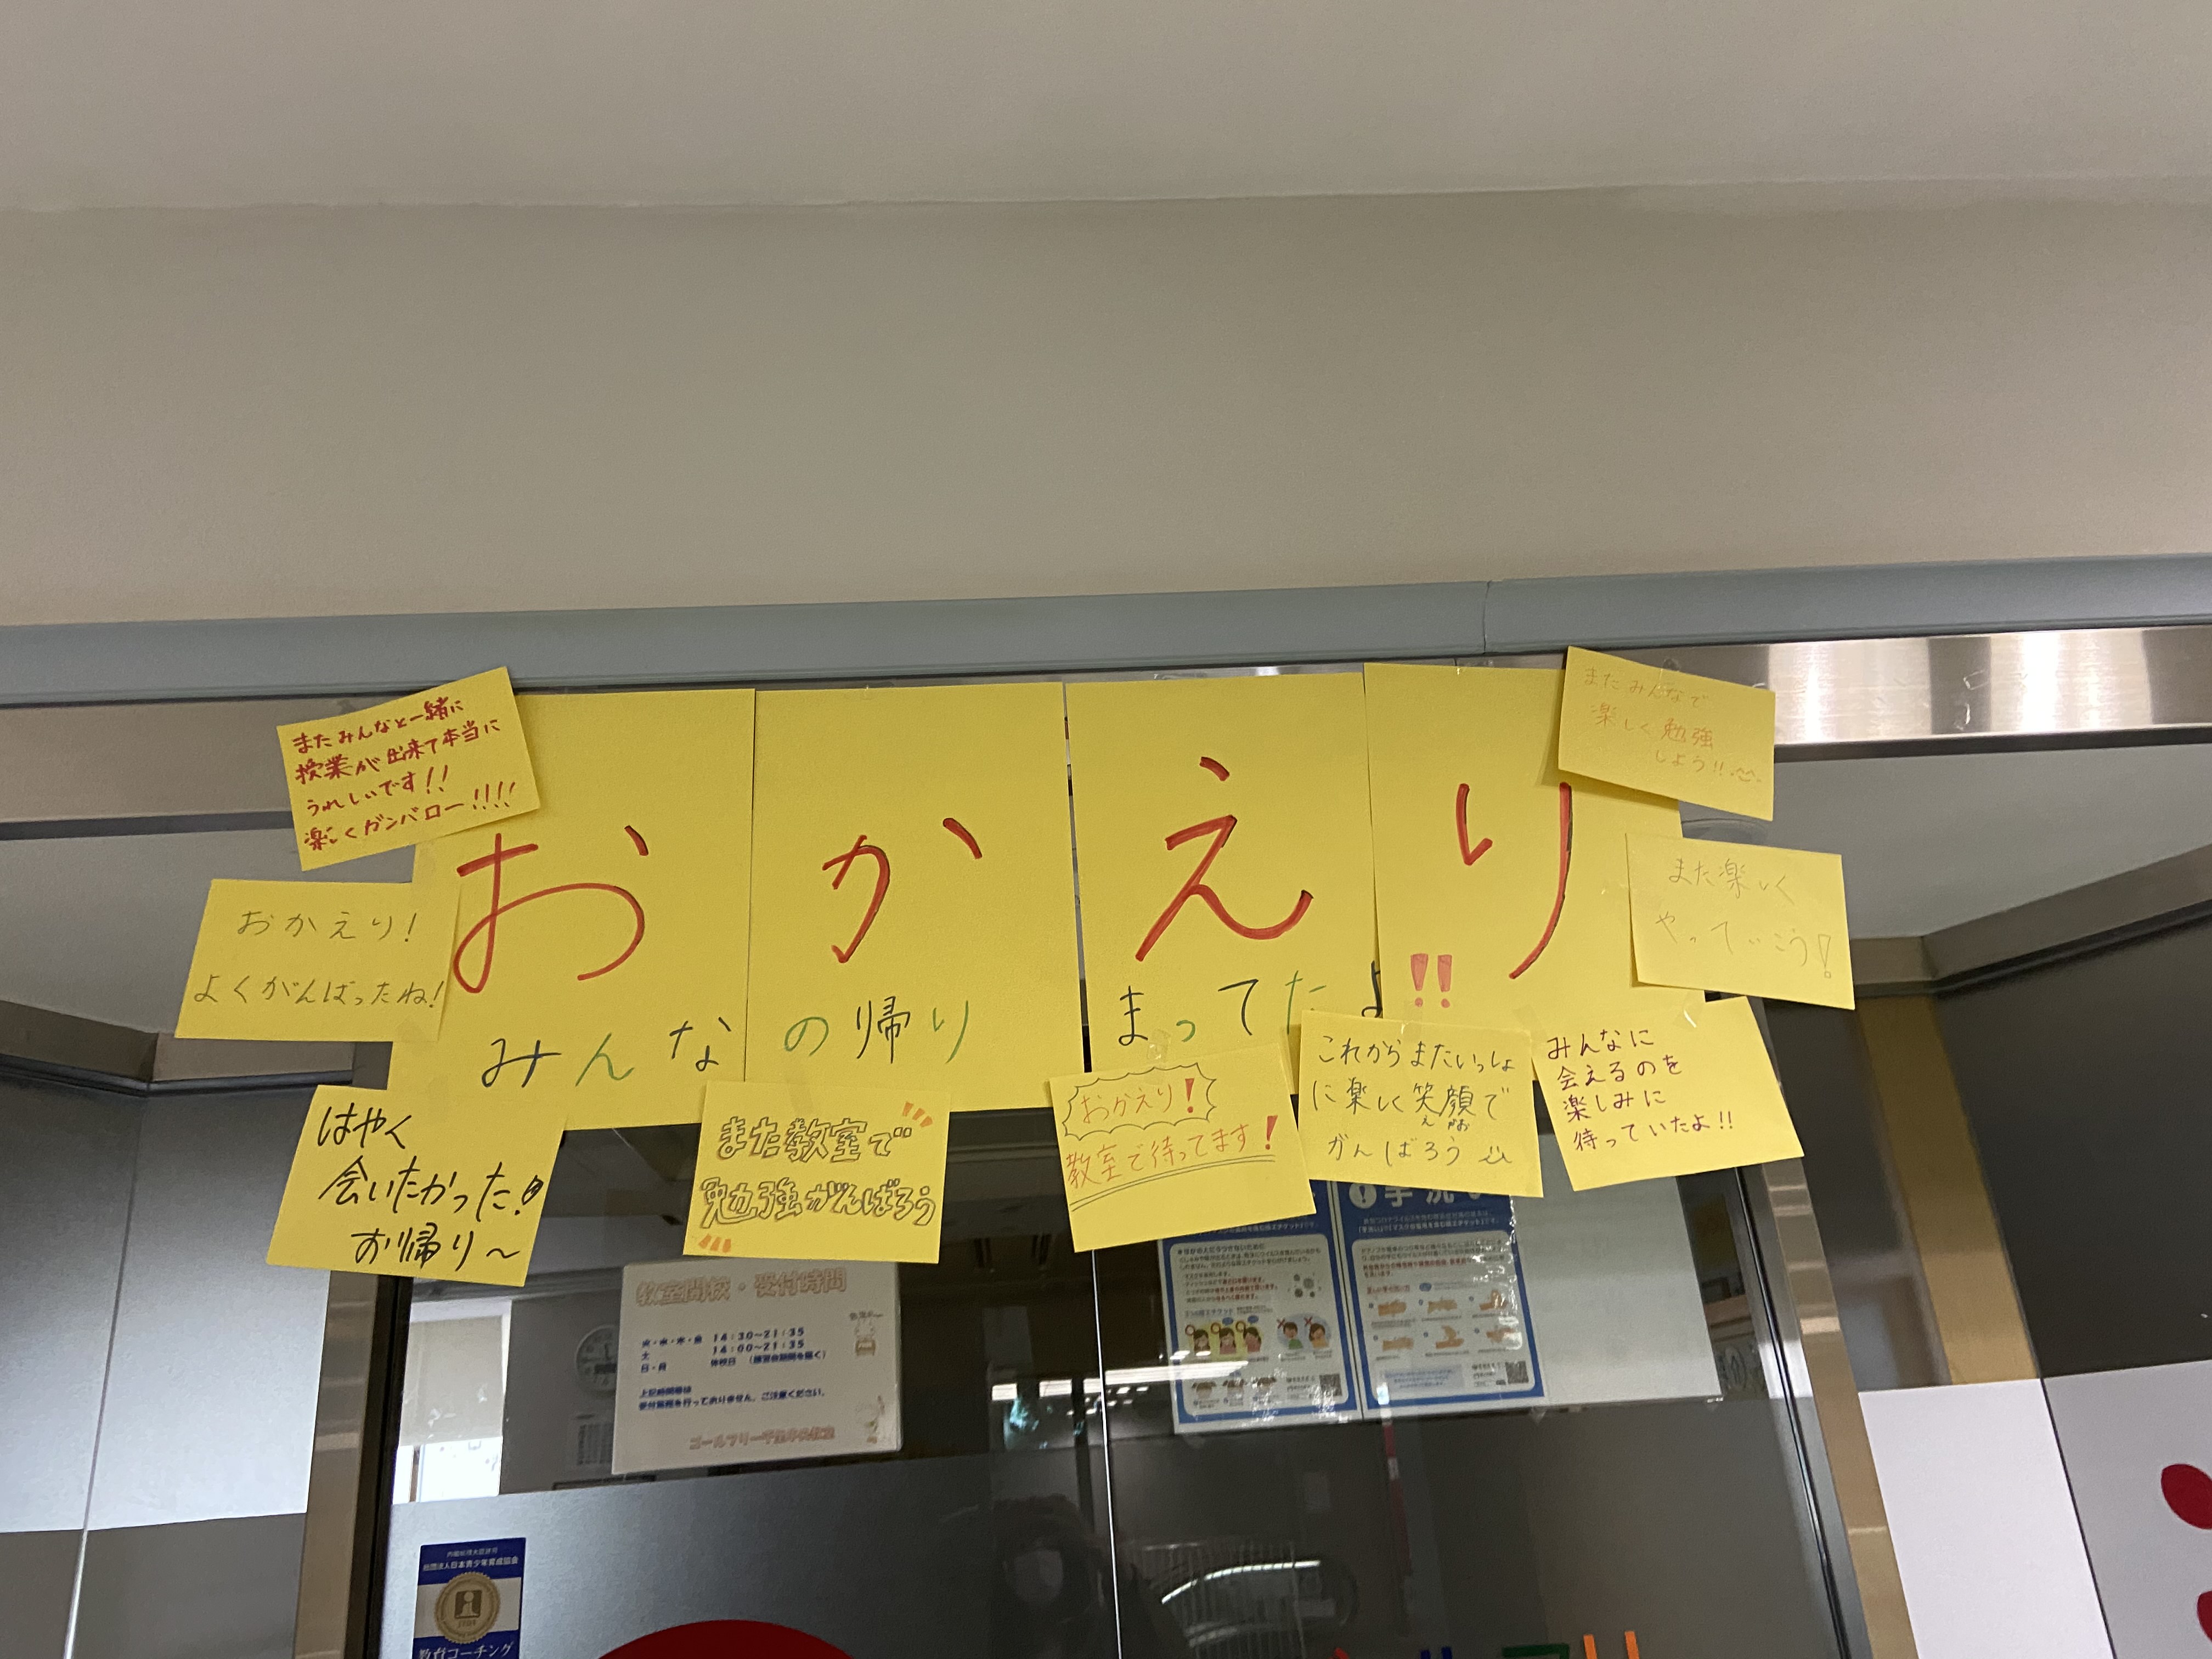 またみんなと一緒に
授業が出来て本当に
うれしいです!!
楽しくガンバロー!!!!
おかえり!
よくがんばったね!
はやく
会いたかった!
お帰り〜
おかえり
みんなの帰り まってたよ!!
また教室で
勉強がんばろう
おかえり!
教室で待ってます!
これからまたいっしょ
に楽しく笑顔で
えがお
がんばろう
みんなに
会えるのを
楽しみに
待っていたよ!!
またみんなで
楽しく勉強
しよう!!
また楽しく
やっていこう!
教室開校・受付時間
火・水・木・金 14:30~21:35
土 14:00~21:35
日・月 休校日 (講習会期間を除く)
上記時間帯は
受付業務を行っておりません。ご注意ください。
ゴールフリー千里中央教室
手洗い
3つの咳エチケット
社団法人日本青少年育成協会
教育コーチング